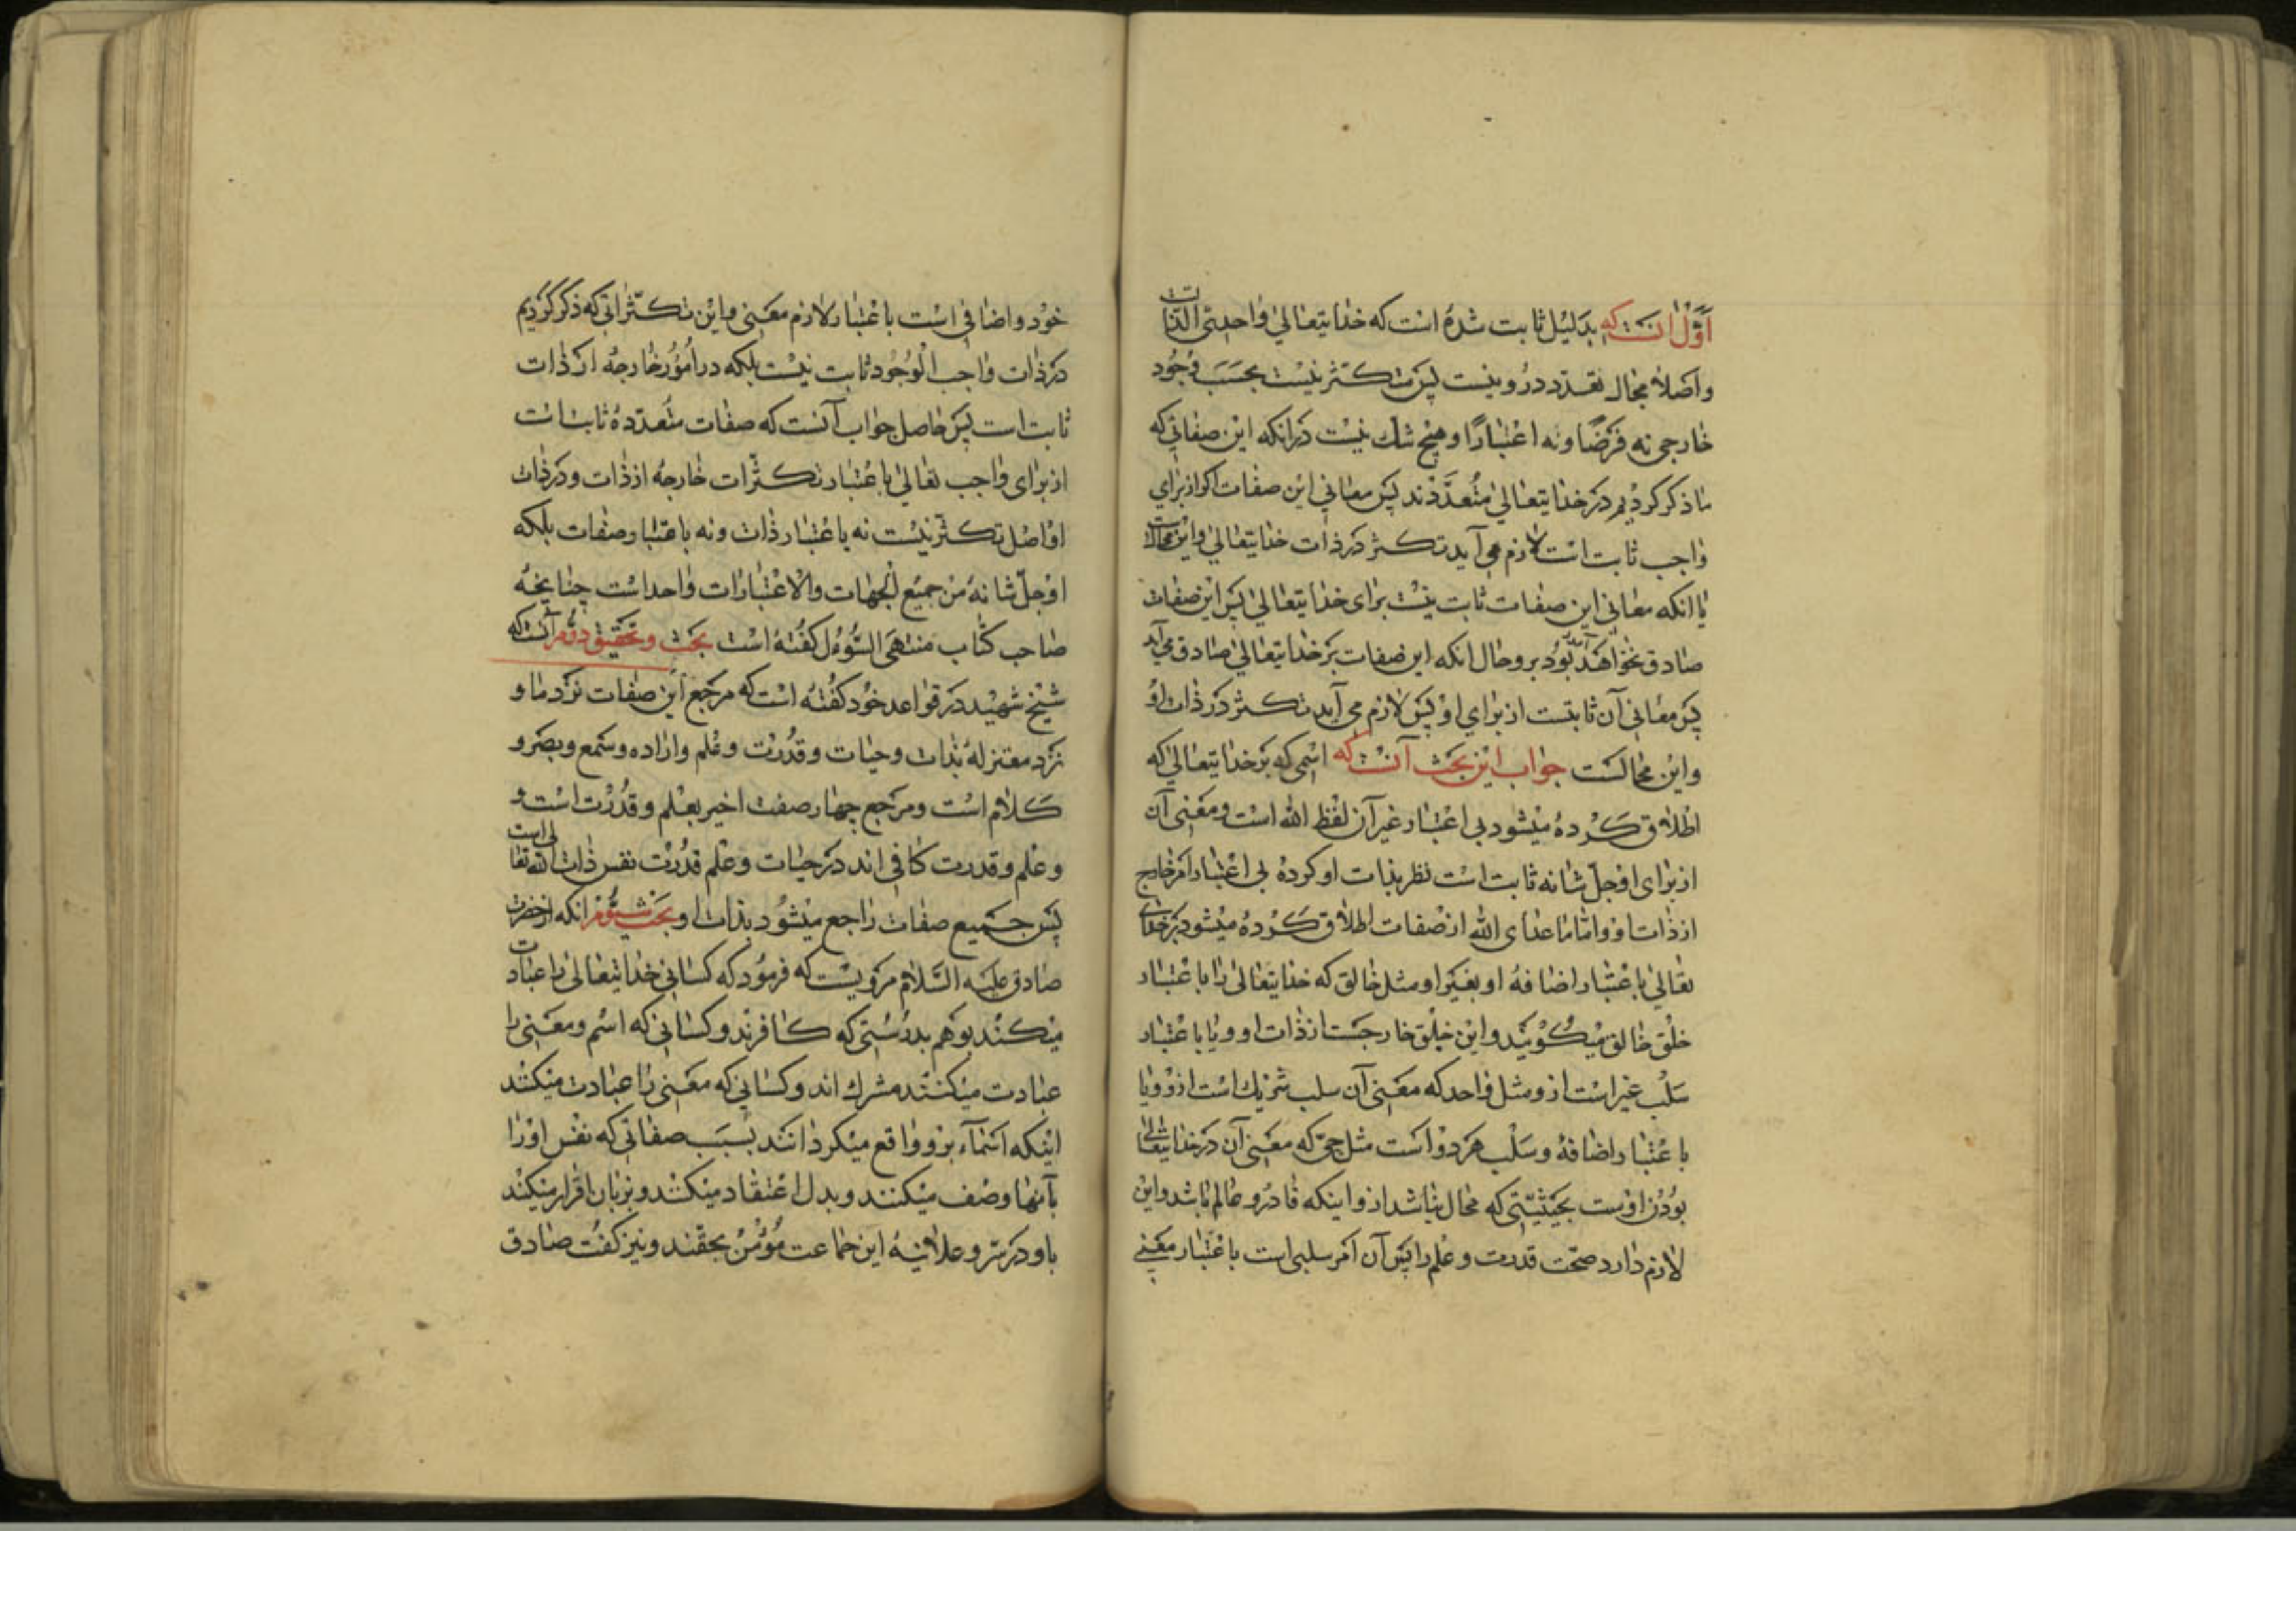 اوّل انست که بدلیل ثابت شده است که خدایتعالی واحدیّ الذات
واصلا مجال تعدد درو نیست پس متکثر نیست بحسب وجود
خارجی نه فرضاً ونه اعتباراً و هیچ شک نیست درانکه این صفاتی که
ما ذکر کردیم در خدایتعالی متعدّدند پس معانی این صفات اکر از برای
واجب ثابت است لازم می آید تکثر در ذات خدایتعالی واین محالست
یا انکه معانی این صفات ثابت نیست برای خدایتعالی پس این صفات
صادق نخواهند بود برو وحال انکه این صفات بر خدایتعالی صادق می آید
پس معانی آن ثابتست از برای او پس لازم می آید تکثر در ذات او
واین محالست جواب این بحث آنست که اسمی که بر خدایتعالی که
اطلاق کرده میشود بی اعتبار غیر آن لفظ الله است ومعنی آن
از برای او جلّ شانه ثابت است نظر بذات او کرده بی اعتبار امر خارج
از ذات او واما ما عدای الله از صفات اطلاق کرده میشود بر خدای
تعالی باعتبار اضافه او بغیر او مثل خالق که خدایتعالی را باعتبار
خلق خالق میکویند واین خلق خارجست از ذات او و یا باعتبار
سلب غیر است ازو مثل واحد که معنی آن سلب شریک است ازو و یا
باعتبار اضافه وسلب هر دو است مثل حیّ که معنی آن در خدایتعالی
بودن اوست بحیثیّتی که محال نباشد ازو اینکه قادر و عالم باشد واین
لازم دارد صحّت قدرت و علم را پس آن امر سلبی است باعتبار معنی
خود واضافی است باعتبار لازم معنی واین تکثّراتی که ذکر کردیم
در ذات واجب الوجود ثابت نیست بلکه در امور خارجه از ذات
ثابت است پس حاصل جواب آنست که صفات متعدده ثابت است
از برای واجب تعالی باعتبار تکثّرات خارجه از ذات ودر ذات
او اصل تکثّر نیست نه باعتبار ذات ونه باعتبار صفات بلکه
او جلّ شانه من جمیع الجهات والاعتبارات واحد است چنانچه
صاحب کتاب منتهی السّؤول کفته است بحث وتحقیق دوّم آنست که
شیخ شهید در قواعد خود کفته است که مرجع این صفات نزد ما و
نزد معتزله بذات وحیات وقدرت وعلم واراده وسمع وبصر و
کلام است ومرجع چهار صفت اخیر بعلم وقدرت است و
وعلم وقدرت کافی اند در حیات وعلم قدرت نفس ذات الله تعالی است
پس جمیع صفات راجع میشود بذات او وبحث سیّوم انکه از حضرت
صادق علیه السّلام مرویست که فرمود که کسانی خدایتعالی را عبادت
میکنند بوهم بدرستی که کافرند وکسانی که اسم ومعنی را
عبادت میکنند مشرک اند وکسانی که معنی را عبادت میکنند
اینکه اسمآء برو واقع میکردانند بسبب صفاتی که نفس او را
بآنها وصف میکنند وبدل اعتقاد میکنند وبزبان اقرار میکنند
باو در سرّ وعلانیه این جماعت مؤمن بحقند ونیز کفت صادق